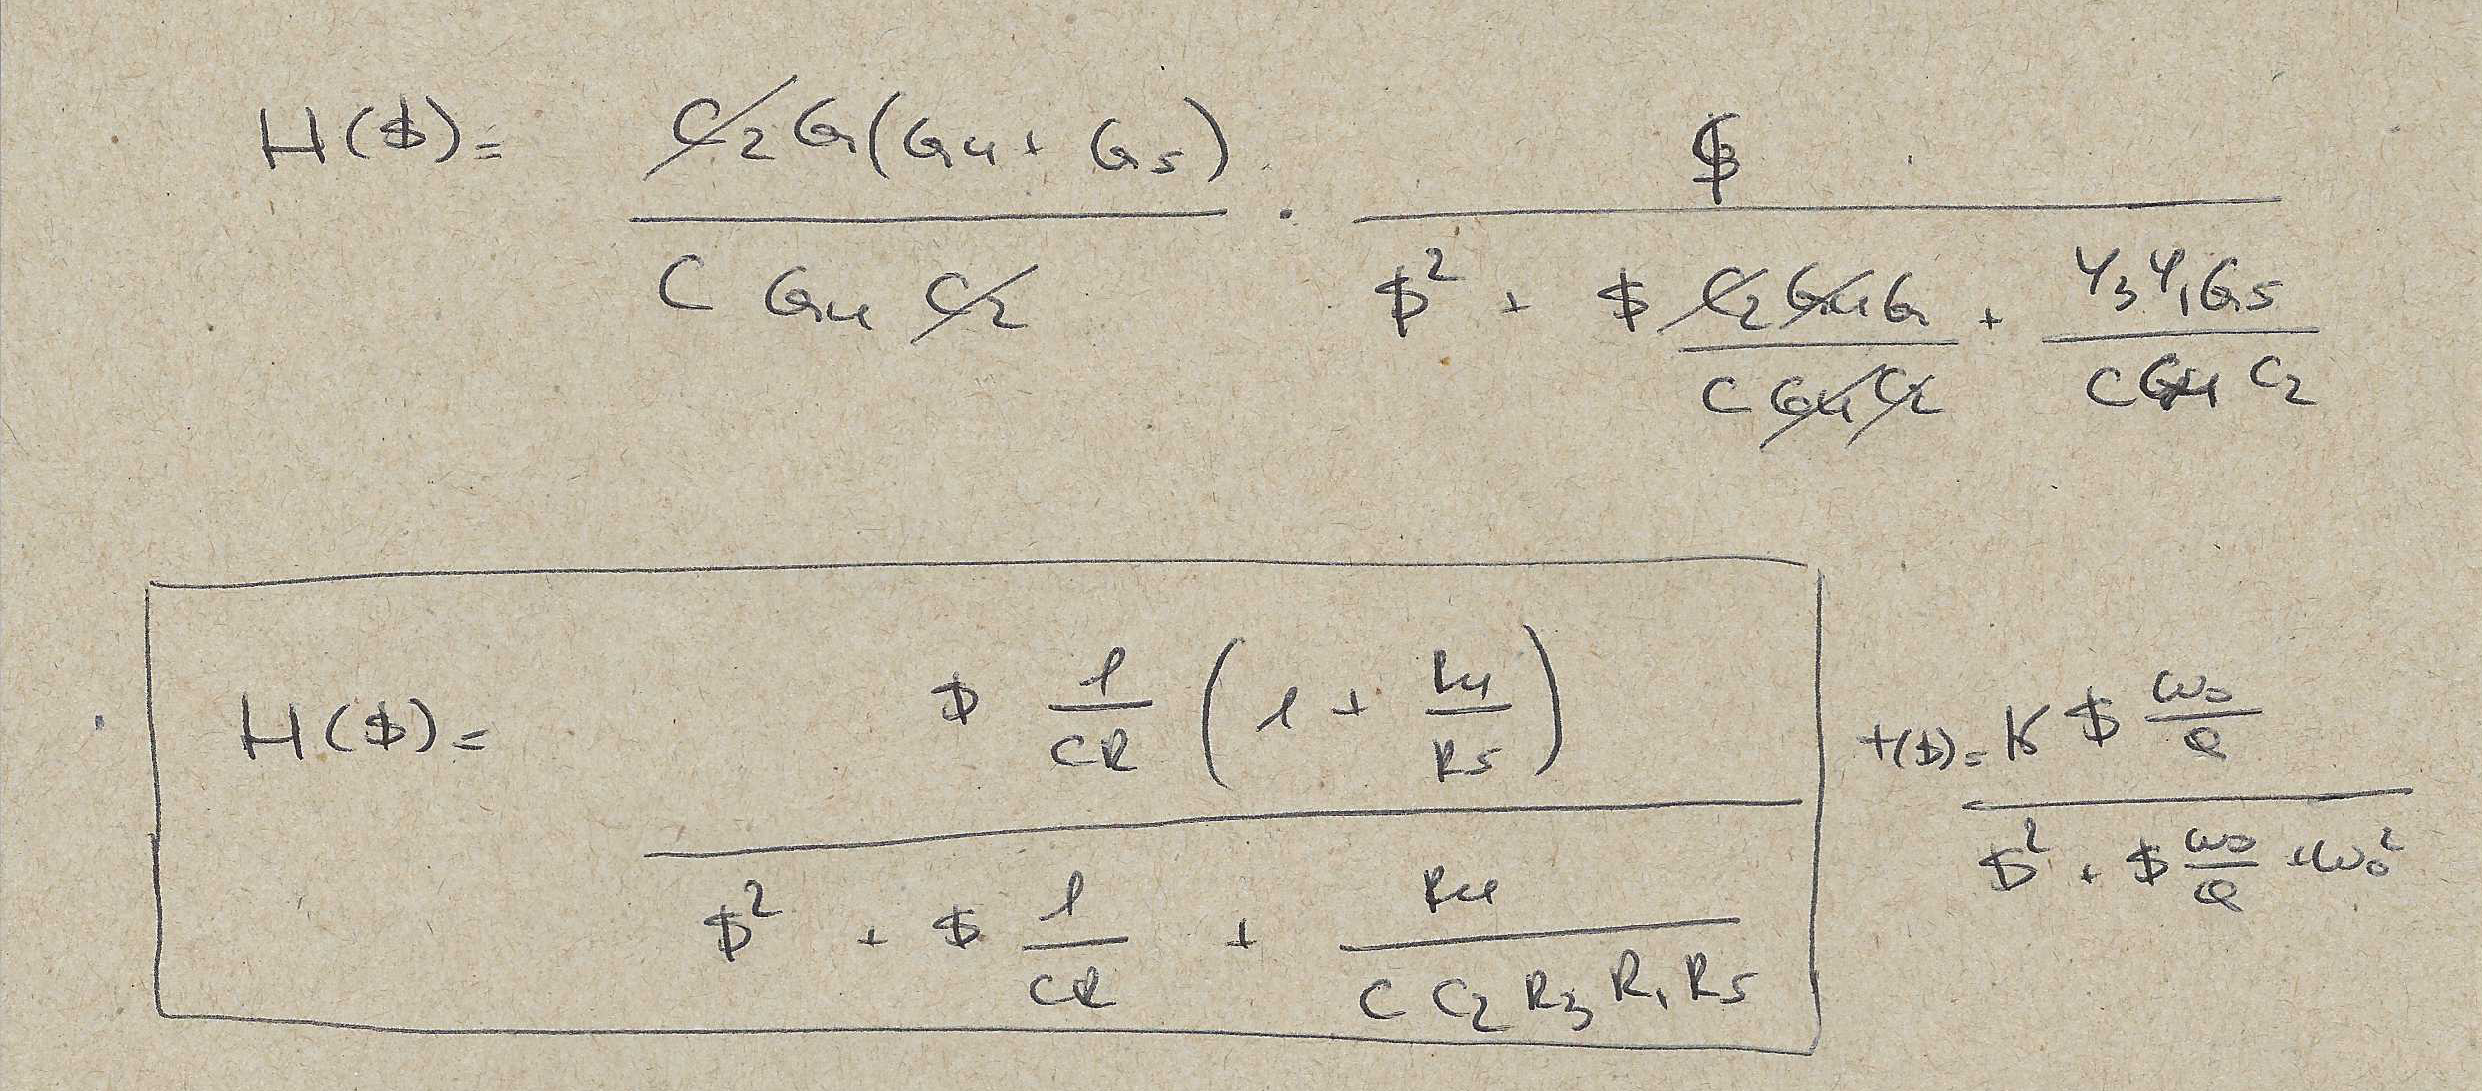 H($) = C2 G (G4 + G5) / C G4 C2 · $ / $² + $ C2 G4 G / C G4 C2 + Y3 Y1 G5 / C G4 C2
H($) = $ 1/CR (1 + R4/R5) / $² + $ 1/CR + R4 / C C2 R3 R1 R5
T($) = K $ ω0/Q / $² + $ ω0/Q + ω0²